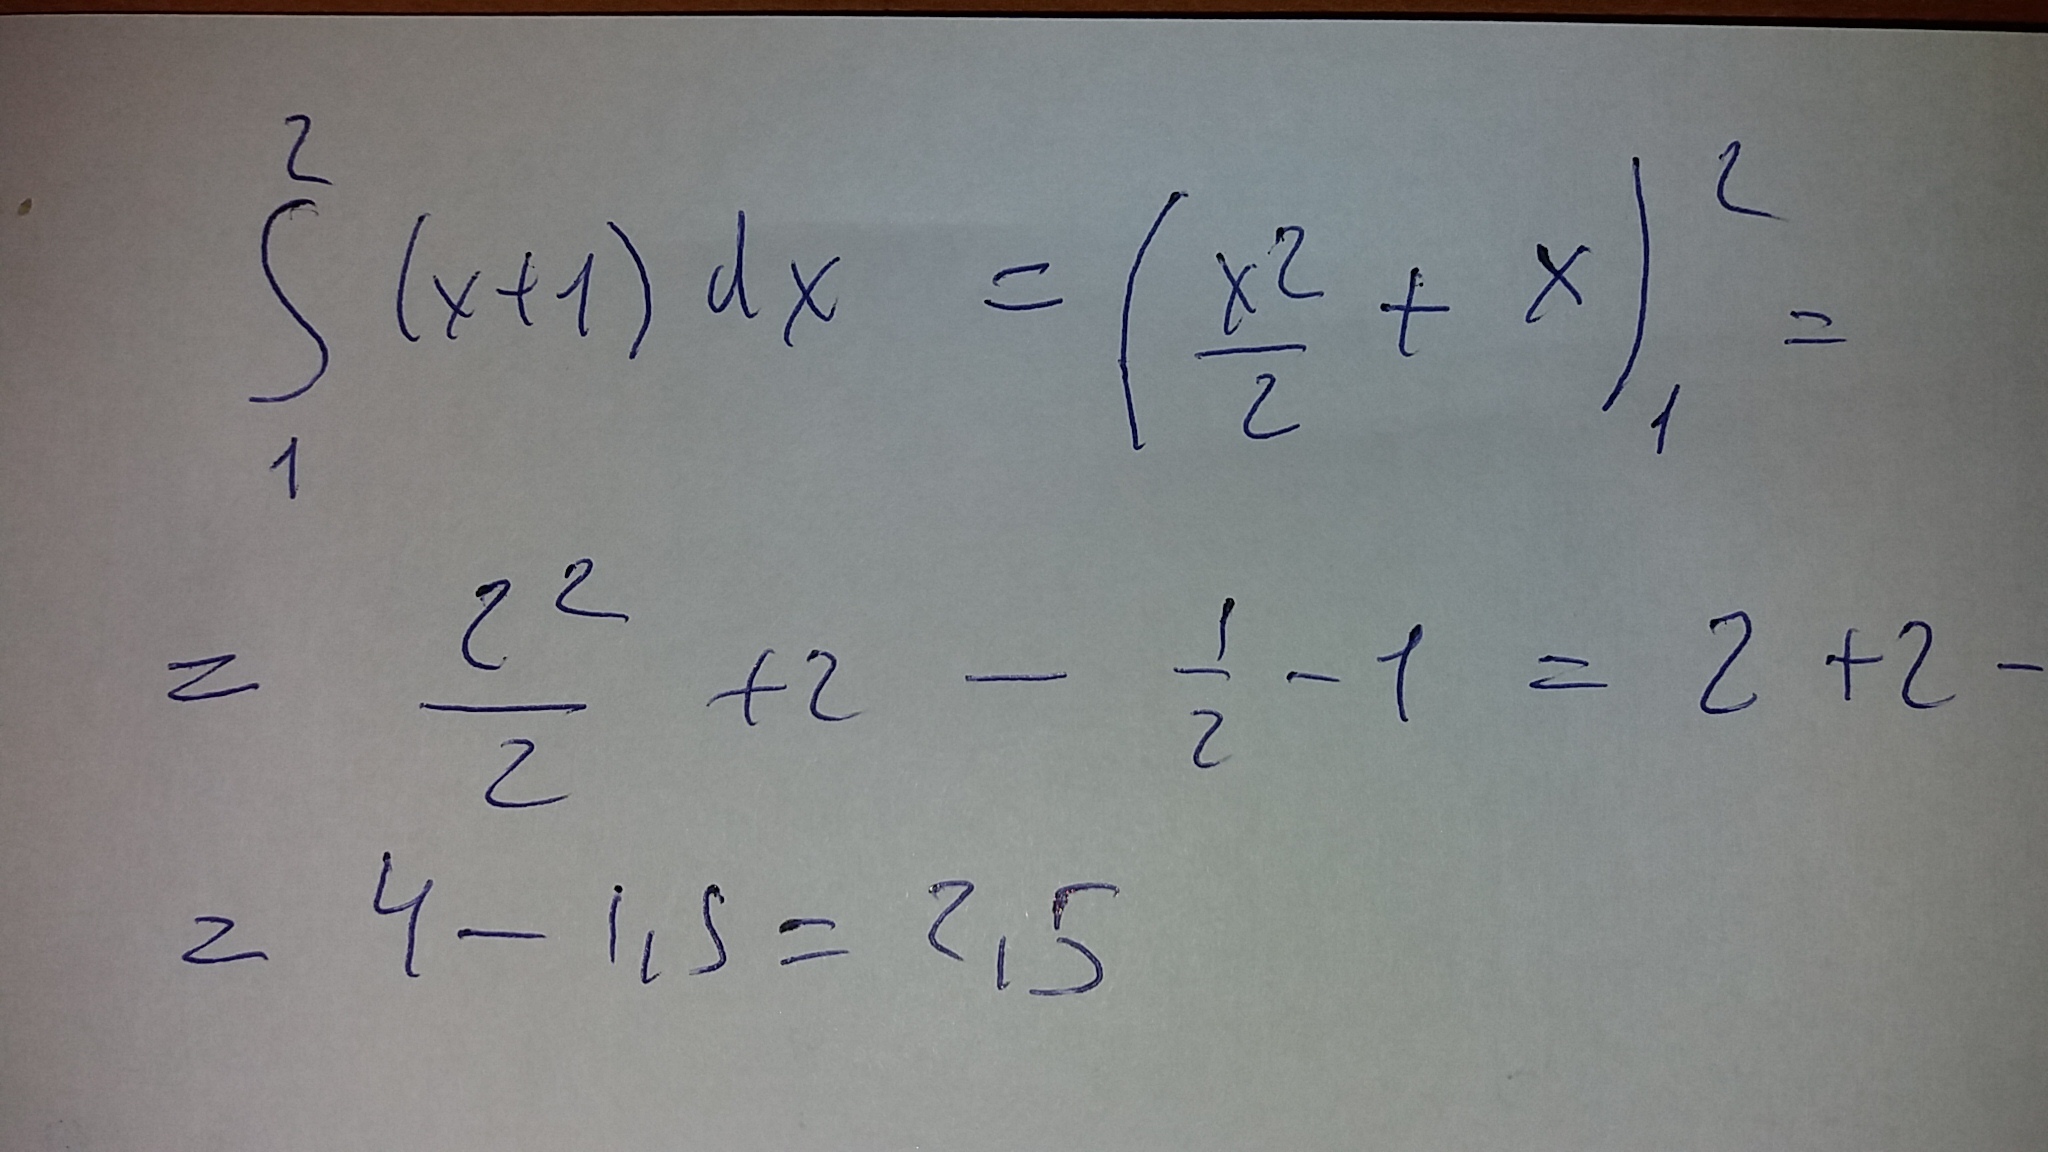 ∫₁² (x+1) dx = (x²/2 + x)|₁² =
= 2²/2 +2 - 1/2 - 1 = 2 +2 -
= 4 - 1,5 = 2,5